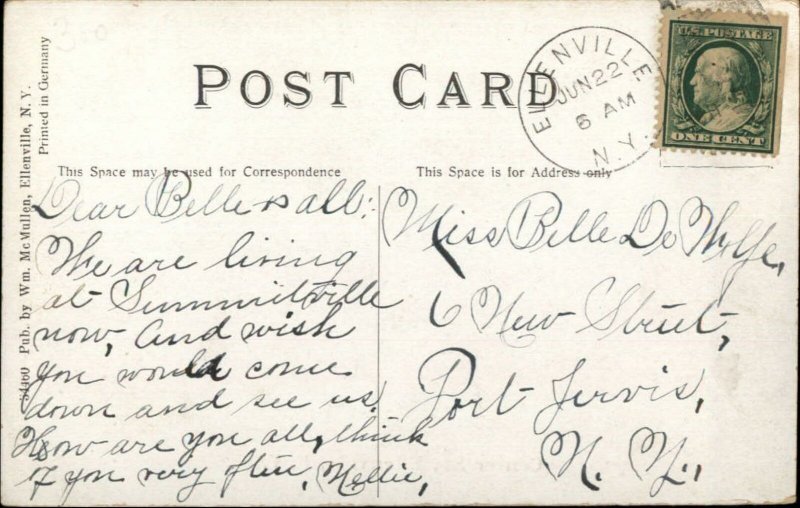 300
POST CARD
ELLENVILLE
JUN 22
6 AM
N.Y.
U.S. POSTAGE
ONE CENT
This Space may be used for Correspondence
This Space is for Address only
34460 Pub. by Wm. McMullen, Ellenville, N. Y.
Printed in Germany
Dear Belle & all:
We are living
at Summitville
now, and wish
you would come
down and see us.
How are you all, think
of you very often, Nellie,
Miss Belle De Wolfe,
6 New Street,
Port Jervis,
N. Y.,